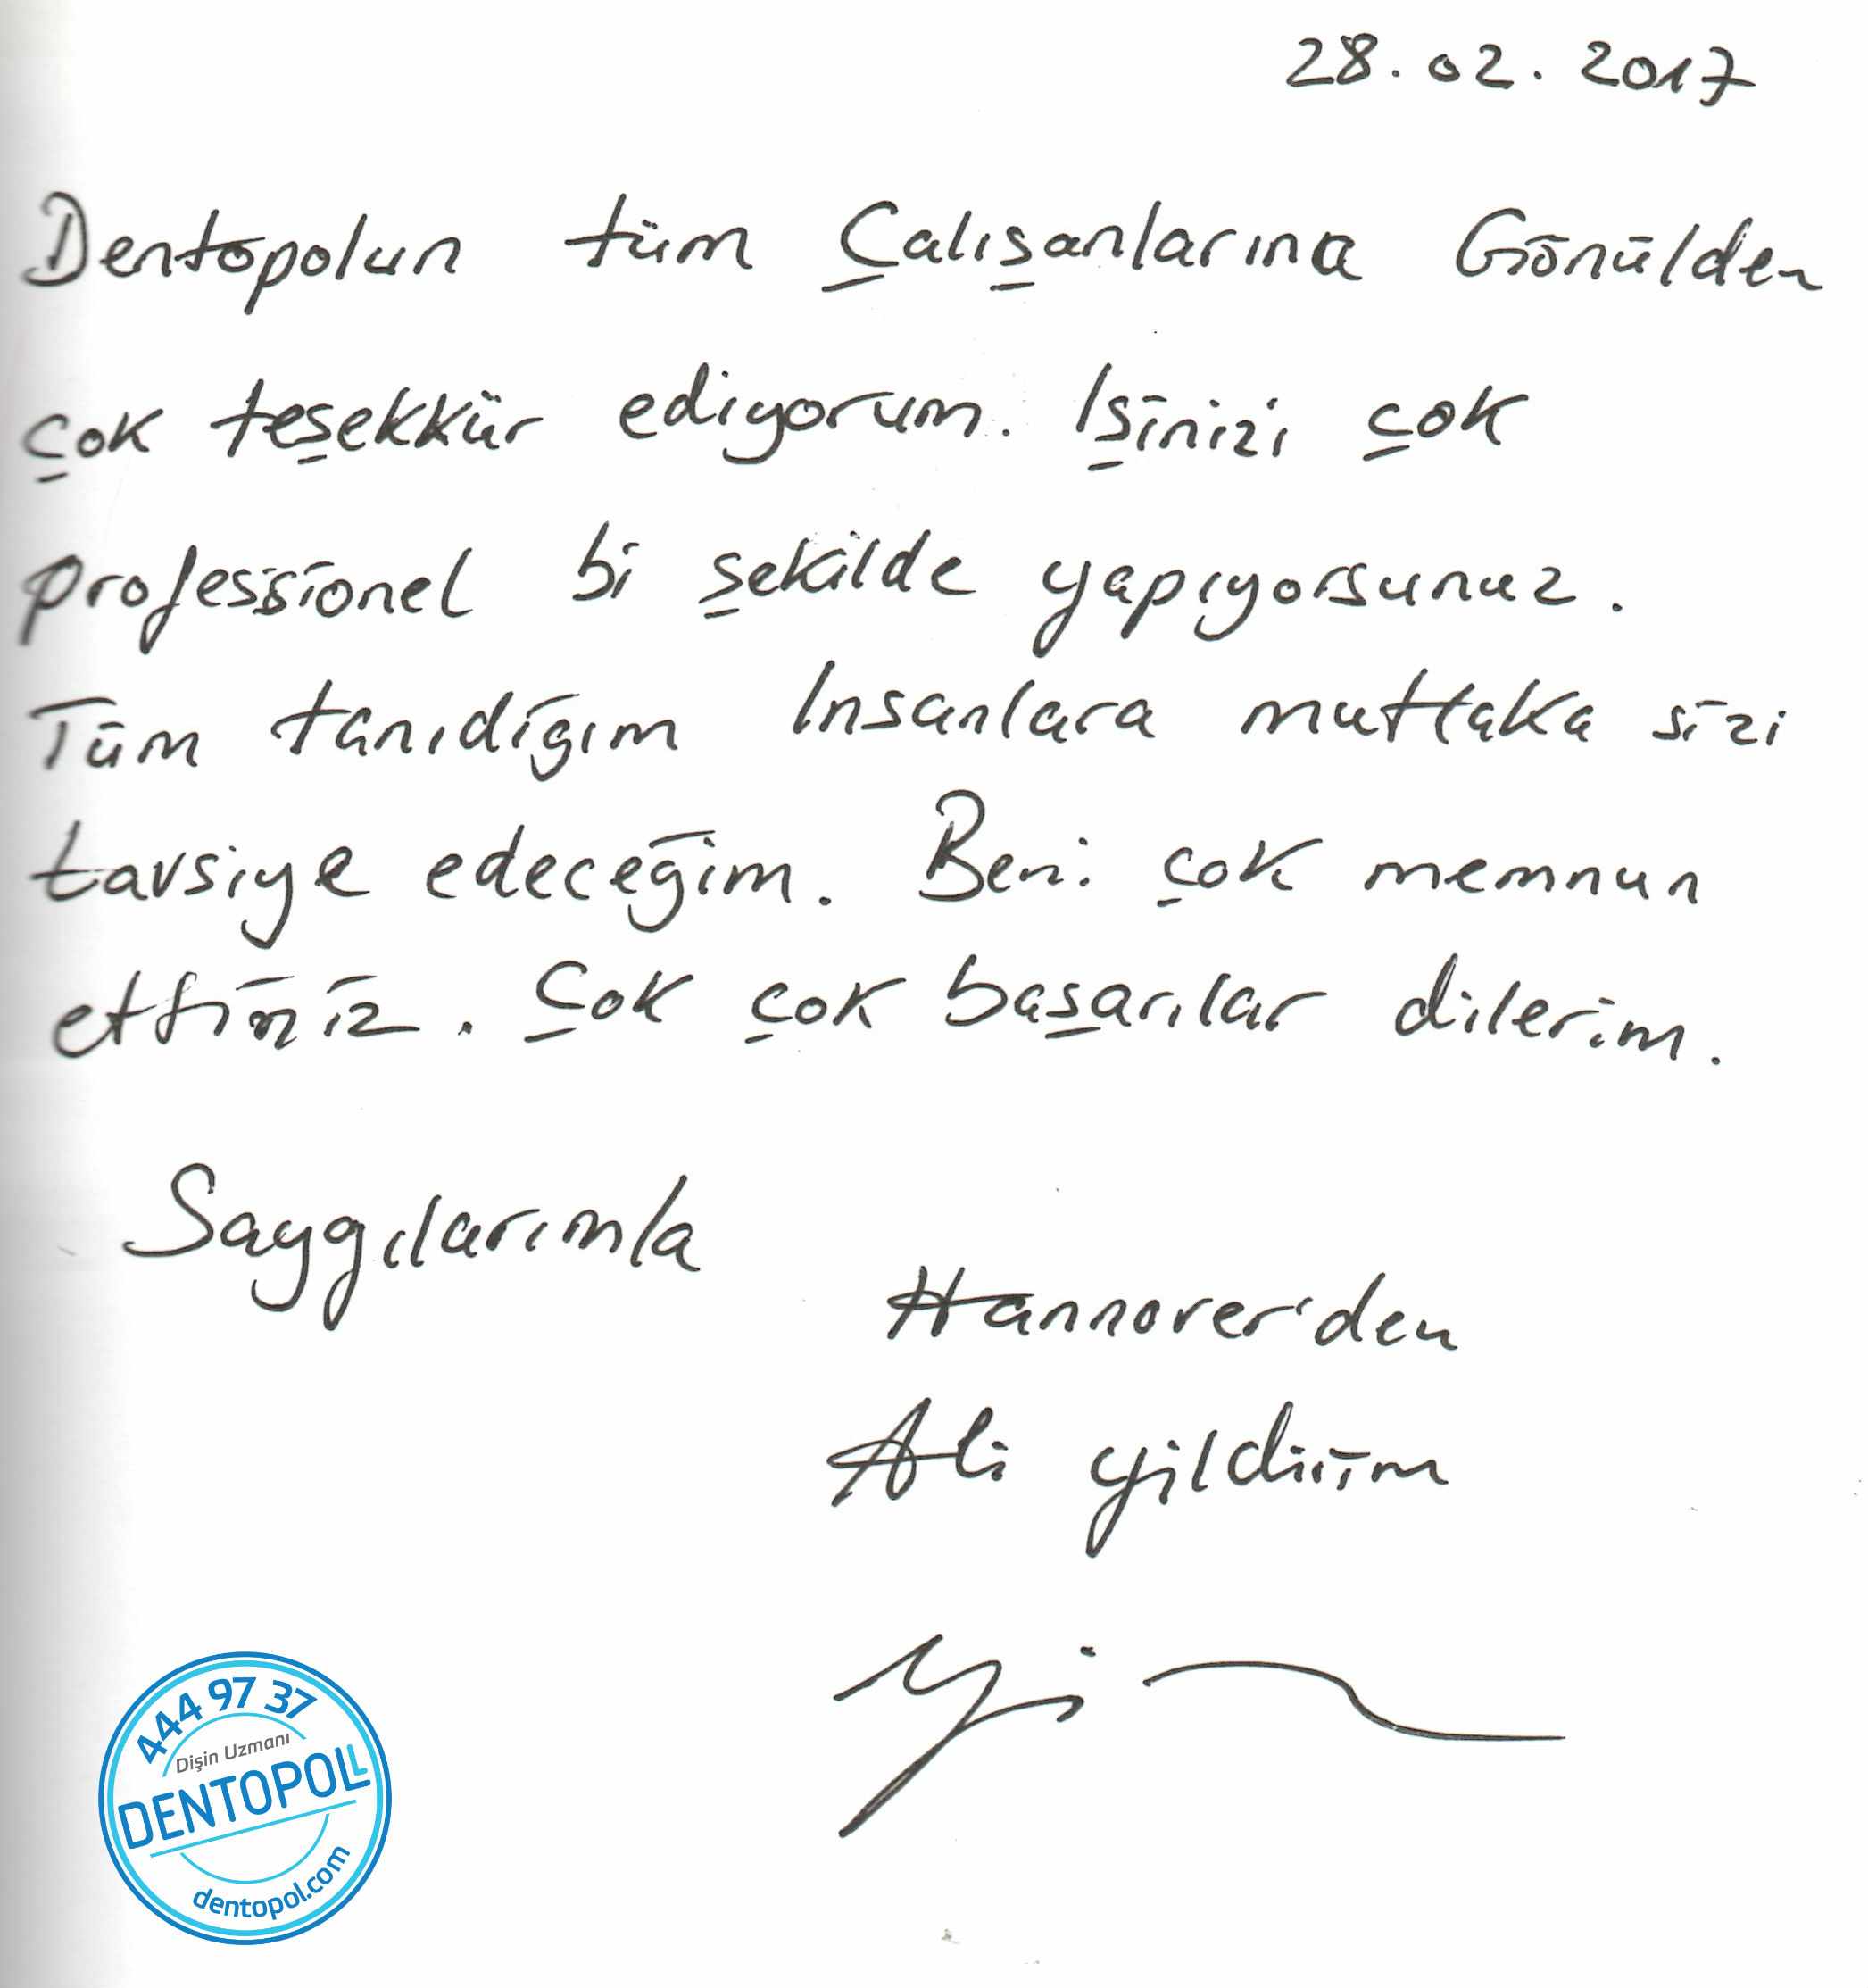 28.02.2017
Dentopolun tüm Çalışanlarına Gönülden
çok teşekkür ediyorum. Işinizi çok
professionel bi şekilde yapıyorsunuz.
Tüm tanıdigım Insanlara muttaka sizi
tavsiye edeceğim. Beni çok memnun
ettiniz. Çok çok başarılar dilerim.
Saygılarımla
Hannover'den
Ali yildirim
444 97 37
Dişin Uzmanı
DENTOPOL
dentopol.com